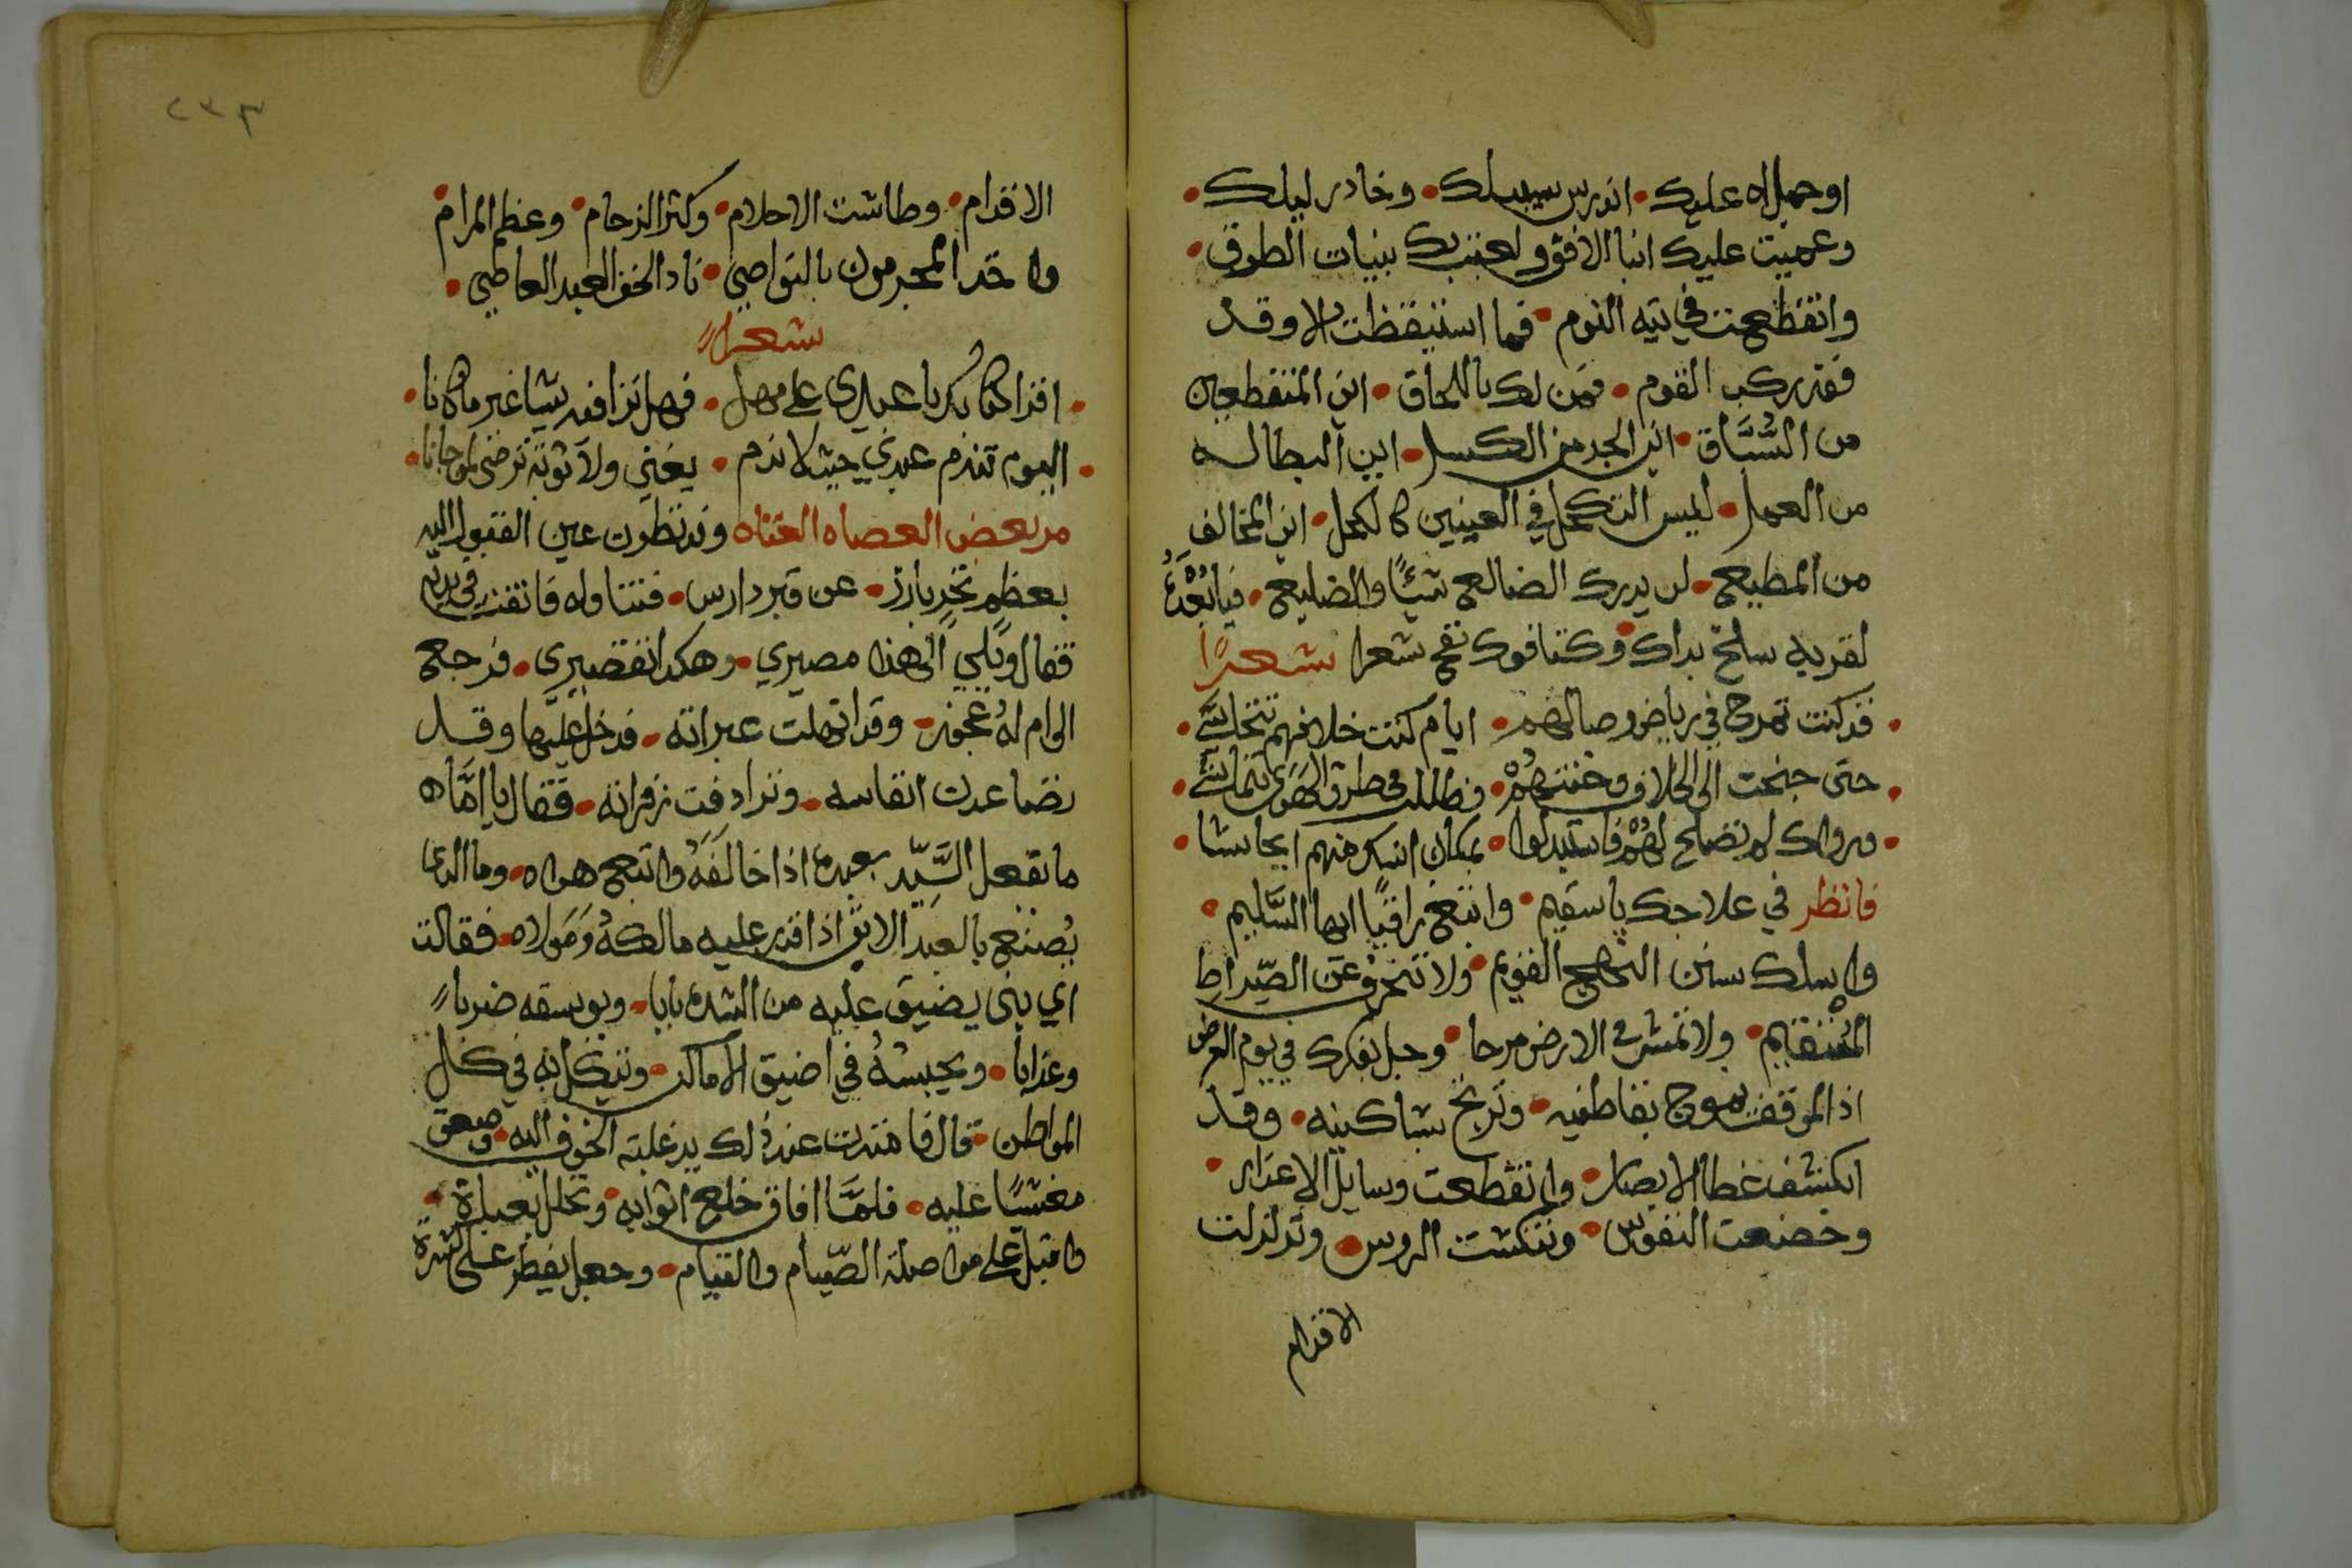 اوحملاه عليك • اندرس سبيلك • وخادر ليلك •
وعميت عليك انبا الافق ولعبت بك بنيات الطوق •
وانقطعت في تيه النوم • فما استيقظت الا وقد
فقد ركب القوم • فمن لك باللحاق • اين المنقطعين
من السُّبَّاق • اين الجد من الكسل • اين البطاله
من العمل • ليس التكحل في العينين كالكحل • اين المخالف
من المطيع • لن يدرك الضالع شيئًا والضليع • فيا بُعْدَ
لقربه سلخ بداك وكتافوك نفخ شعرا شعرًا
• قد كنت تمرح في رياض وصالهم • ايام كنت خلافهم تتحاشى •
• حتى جنحت الى الخلاف وخنتهُمْ • فظللت في طرق الهَوَى تتماشى •
• وراوك لم تصلح لهُمْ فاستبدلوا • بمكان انسك منهم ايحاشا •
فانظر في علاجك يا سقيم • وابتغ راقيًا ايها السَّليم •
واسلك سنن النهج القويم • ولا تنحرف عن الصِّراط
المُستقيم • ولا تمش في الارض مرحا • وجل بفكرك في يوم العرض
اذ الموقف يموج بقاطنيه • وتَرتج بساكنيه • وقد
انكشف غطا الابصار • وانقطعت وسايل الاعذار •
وخضعت النفوس • ونكست الروس • وتزلزلت
الاقدام
٢٣٣
الاقدام • وطاشت الاحلام • وكثر الزحام • وعظم المرام •
واخذ المجرمون بالنواصي • نادا الحق العبد العاصي •
شعرا
• اقرا كتابك يا عبدي على مهل • فهل ترا فيه شيا غير ما كانا •
• اليوم تندم عبدي حيث لا ندم • يغني ولا توبة ترضى لمو جانا •
مر بعض العصاه العتاه وقد نظرت عين القبول اليه
بعظم نخرٍ بارز • عن قبر دارس • فتناوله فانفت في يديه
فقال ويلي الى هذا مصيري • وهكذا تقصيري • فرجع
الى ام لهُ عجوز • وقد انهلت عبراته • فدخل عليها وقد
تضاعدت انفاسه • وترادفت زفراته • فقال يا امَّاه
ما يفعل السَّيِّد بعبده اذا خالَفَهُ واتبع هواه • وما الذي
يُصنع بالعبد الابق اذا قدر عليه مالكهُ وَمَولاه • فقالت
اي بني يضيق عليه من الشده بابا • ويوسقه ضربا
وعذابا • ويحبسهُ في اضيق الاماكن • وينكل به في كل
المواطن • قال فامتدت عند ذلك يد غلبة الخوف اليه • وصعق
مغشيًا عليه • فلمَّا افاق خلع اثوابه • وتخلل بعباءة •
واقبل على مواصلة الصِّيام والقيام • وجعل يفطر على كسرة